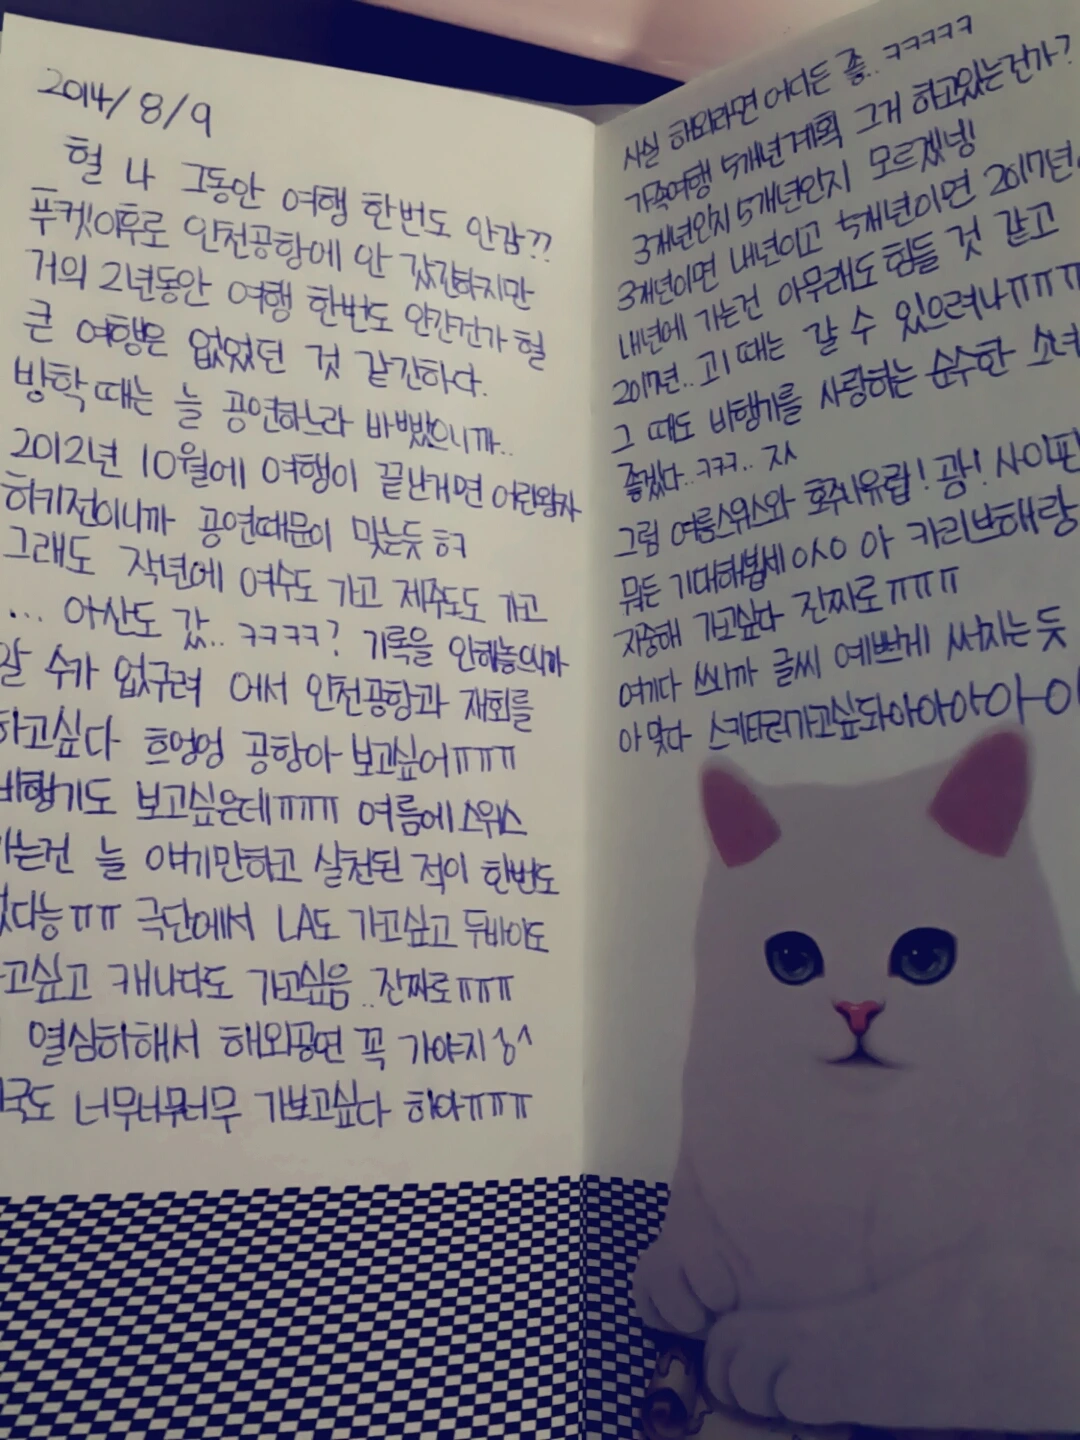 2014/8/9
헐 나 그동안 여행 한번도 안감??
푸켓이후로 인천공항에 안 갔긴하지만
거의 2년동안 여행 한번도 안간건가 헐
큰 여행은 없었던 것 같긴하다.
방학때는 늘 공연하느라 바빴으니까..
2012년 10월에 여행이 끝난거면 어린왕자
하기전이니까 공연때문이 맞는듯 ㅎㅋ
그래도 작년에 여수도 가고 제주도도 가고
... 아산도 갔.. ㅋㅋㅋㅋ? 기록을 안해놓으니까
알 수가 없구려 어서 인천공항과 재회를
하고싶다 흐엉엉 공항아 보고싶어ㅠㅠㅠ
비행기도 보고싶은데ㅠㅠㅠ 여름에 스위스
가는건 늘 얘기만하고 실천된 적이 한번도
없다능ㅠㅠ 극단에서 LA도 가고싶고 두바이도
가고싶고 캐나다도 가고싶음..진짜로ㅠㅠㅠ
열심히해서 해외공연 꼭 가야지
너무너무너무 가보고싶다 히야ㅠㅠㅠ
사실 해외라면 어디든 좋.. ㅋㅋㅋㅋㅋ
가족여행 5개년계획 그거 하고있는건가?
3개년인지 5개년인지 모르겠넹
3개년이면 내년이고 5개년이면 2017년
내년에 가는건 아무래도 힘들 것 같고
2017년.. 고1 때는 갈 수 있으려나ㅠㅠㅠ
그 때도 비행기를 사랑하는 순수한 소녀
좋겠다..ㅋㅋㅋ.. 자
그럼 여름스위스와 호주!유럽! 괌! 사이판
뭐든 기대해봅세 이시이 아 카리브해랑
지중해 가고싶다 진짜로ㅠㅠㅠ
여기다 쓰니까 글씨 예쁘게 써지는듯
아 맞다 스키타러가고싶돠아아아아아